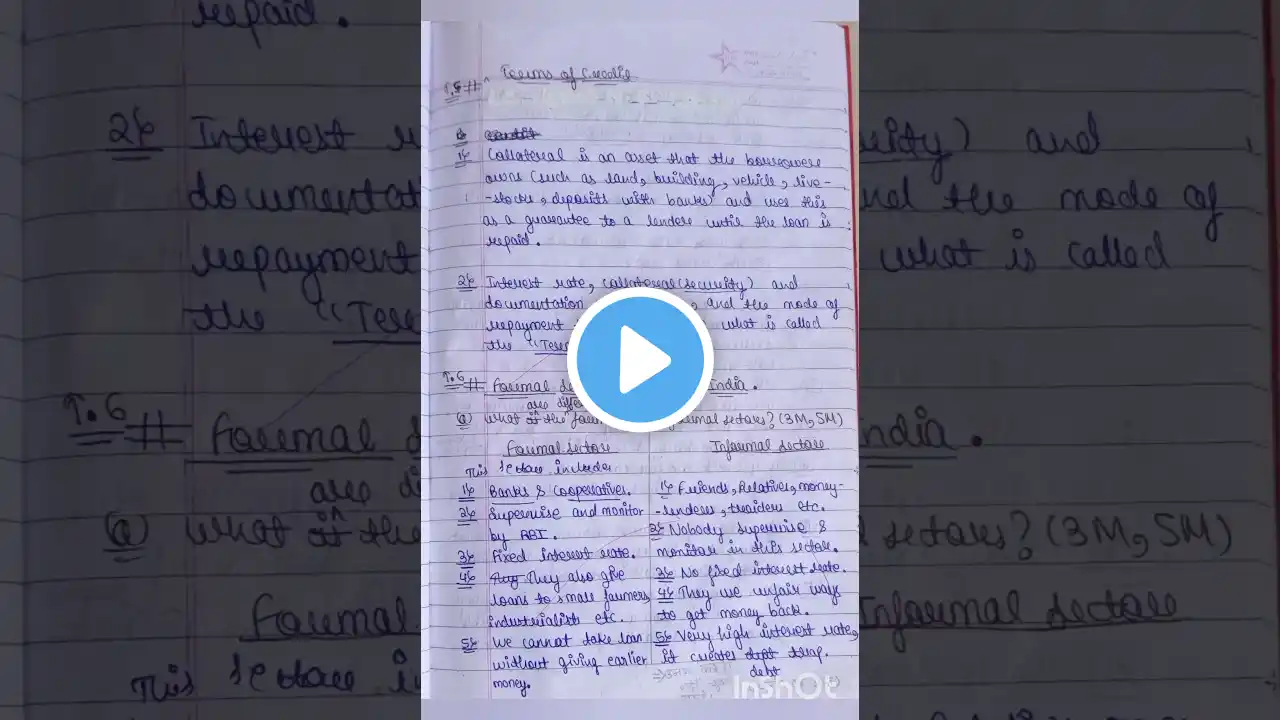 T.5# Terms of Credit
1) Collateral is an asset that the borrower
owns (such as land, building, vehicle, live-
-stocks, deposits with banks) and uses this
as a guarantee to a lender until the loan is
repaid.
2) Interest rate, collateral (security) and
documentation , and the mode of
repayment what is called
the "Ter
T.6 # Formal se India.
are diff
Q) What the for formal sectors? (3M, 5M)
Formal sector Informal sector
This sector includes
1) Banks & Cooperatives. 1) Friends, Relatives, money-
2) Supervise and monitor -lenders, traiders etc.
by RBI. 2) Nobody supervise &
3) Fixed interest rate. monitor in this sector.
4) They They also give 3) No fixed interest rate.
loans to small farmers, 4) They use unfair ways
industrialists etc. to get money back.
5) We cannot take loan 5) Very high interest rate,
without giving earlier it creates dept trap.
money. debt
InShOt